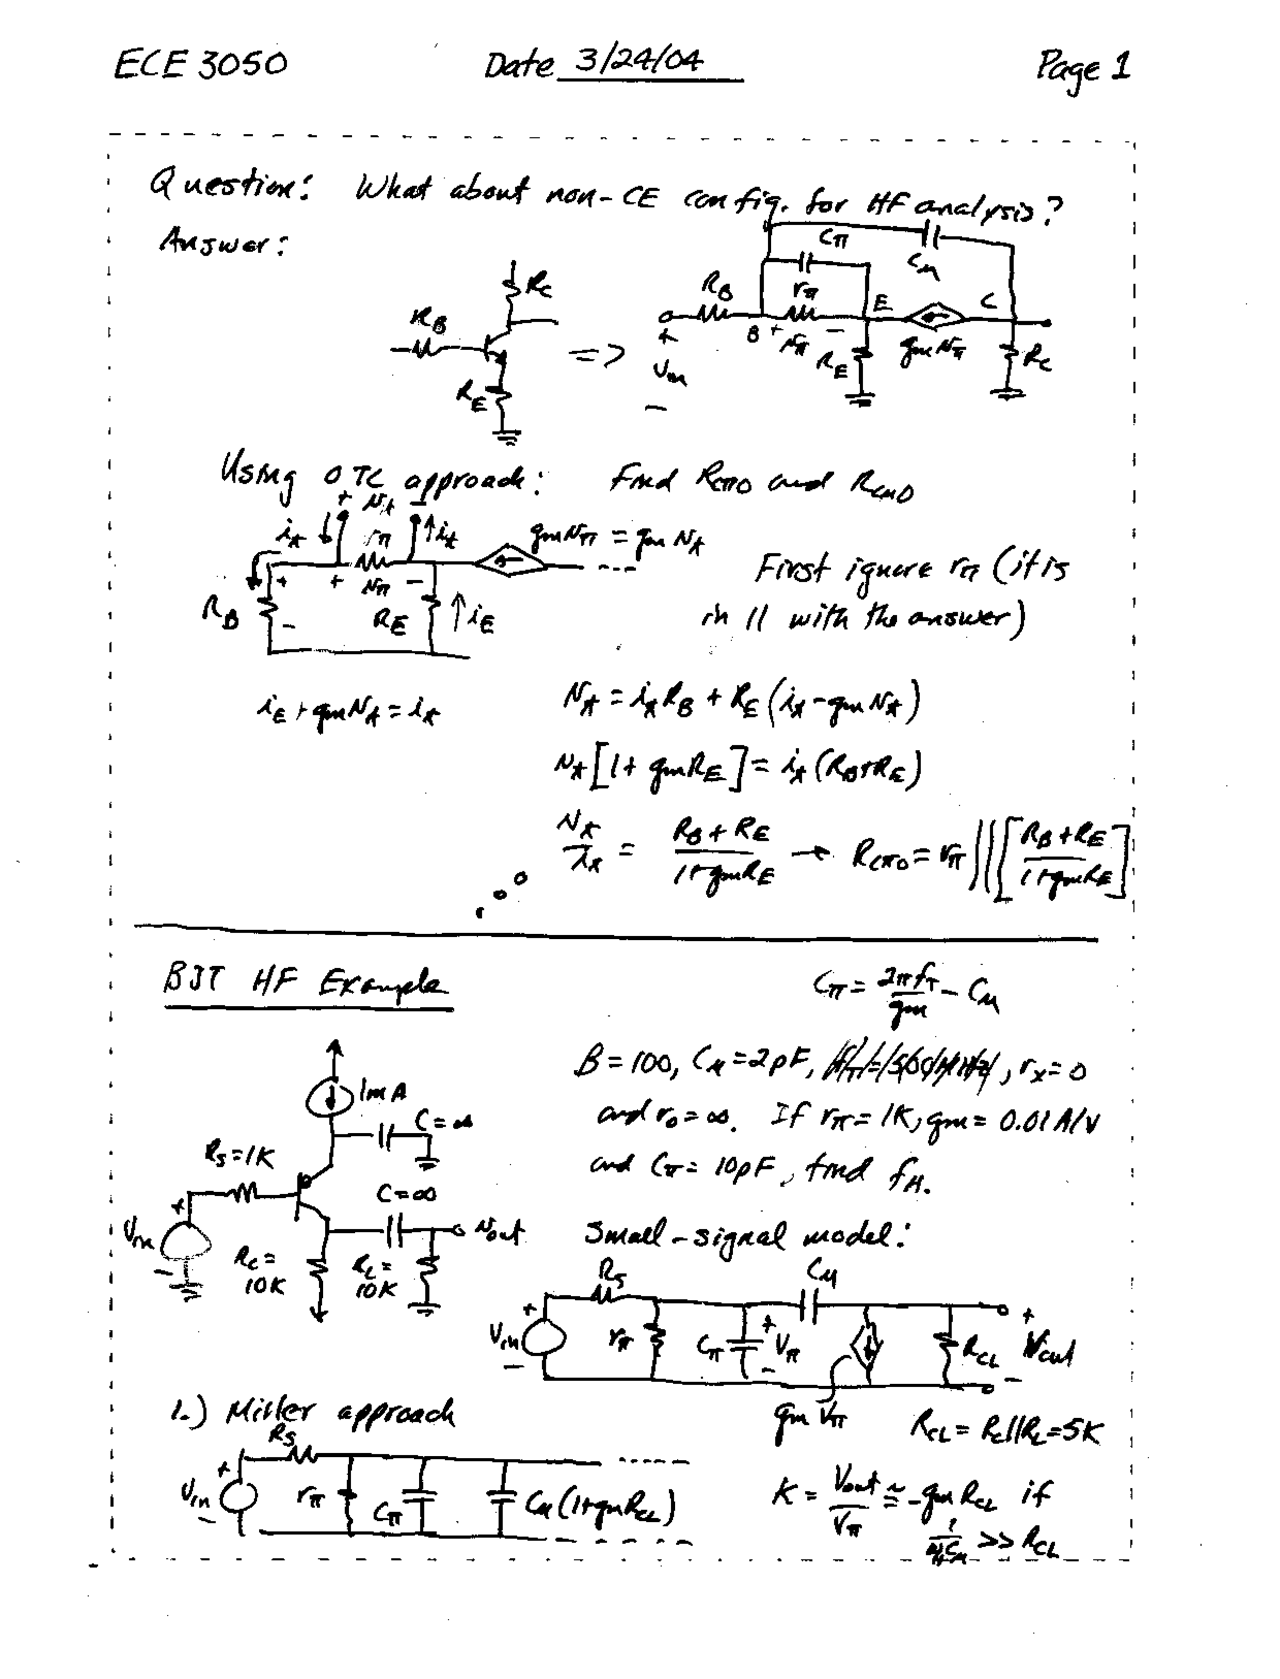 ECE 3050 Date 3/24/04 Page 1
Question: What about non-CE config. for HF analysis?
Answer:
RC
RB
RE
=>
Cπ
Cμ
RB
rπ
E
C
B + vπ -
+
Vin
-
RE
gmvπ
RC
Using OTC approach: Find RCπ0 and RCμ0
+ vx -
ix
rπ
ix
gmvπ = gmvx
+ vπ -
RB
+
-
RE
iE
First ignore rπ (it is
in // with the answer)
iE + gmvx = ix
vx = ixRB + RE(ix - gmvx)
vx[1 + gmRE] = ix(RB+RE)
vx/ix = (RB + RE)/(1+gmRE) → RCπ0 = rπ ||| [(RB+RE)/(1+gmRE)]
BJT HF Example
Cπ = 2πfT/gm - Cμ
1mA
C=∞
RS=1K
C=∞
+
Vin
-
vout
RC=
10K
RL=
10K
B=100, Cμ=2pF, fT=500MHz, rx=0
and ro=∞. If rπ=1K, gm=0.01A/V
and Cπ=10pF, find fH.
Small-signal model:
RS
Cμ
+
Vin
-
rπ
Cπ
+
Vπ
-
gmVπ
RCL
+
Vout
-
RCL = RC||RL=5K
1.) Miller approach
RS
+
Vin
-
rπ
Cπ
Cμ(1+gmRCL)
K = Vout/Vπ ≅ -gmRCL if
1/ωHCμ >> RCL